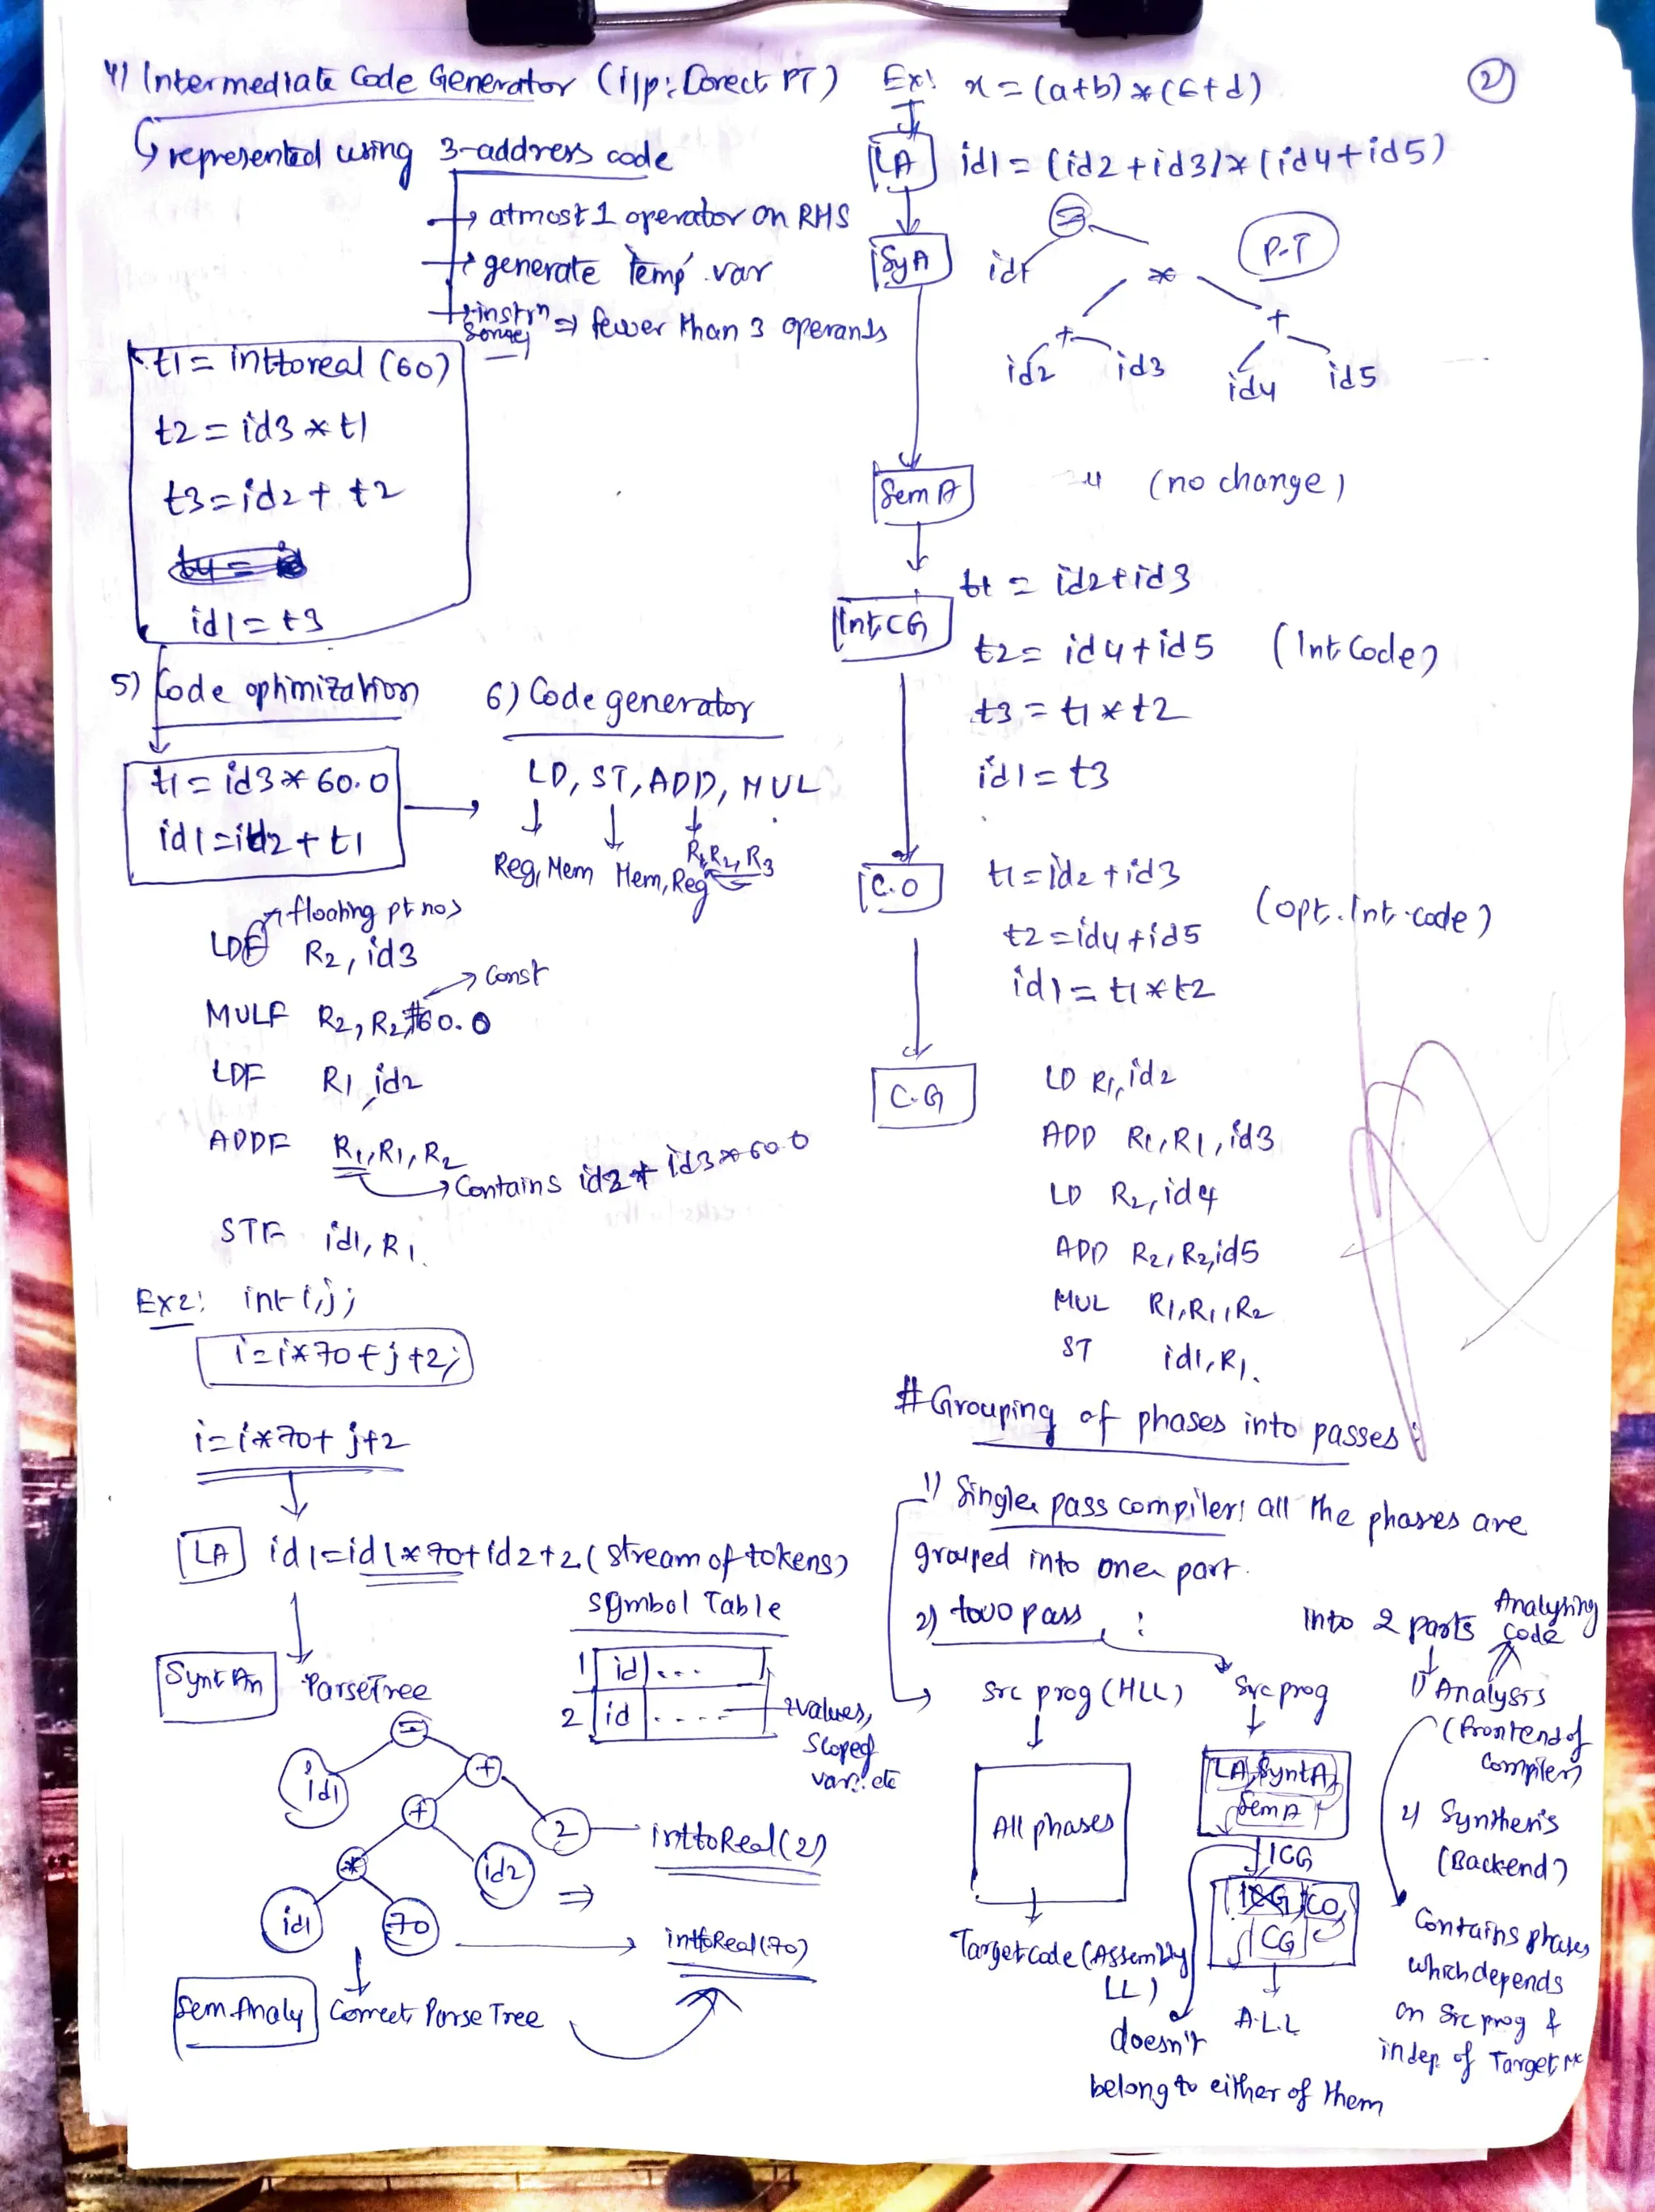 4) Intermediate Code Generator (i/p: Corect PT)
represented using 3-address code
→ atmost 1 operator on RHS
→ generate temp var
→ instrn => fewer than 3 operands
t1 = inttoreal (60)
t2 = id3 * t1
t3 = id2 + t2
id1 = t3
5) Code optimization
t1 = id3 * 60.0
id1 = id2 + t1
6) Code generator
LD, ST, ADD, MUL
Reg, Mem Mem, Reg R1, R2, R3
floating pt nos
LDF R2, id3
→ const
MULF R2, R2, #60.0
LDF R1, id2
ADDF R1, R1, R2
→ Contains id2 + id3 * 60.0
STF id1, R1.
Ex2: int i, j;
i = i*70 + j + 2;
i = i*70 + j+2
LA id1 = id1 * 70 + id2 + 2 (stream of tokens)
Symbol Table
1 id ...
2 id ....
→ values, Scope of var. etc
Synt An ParseTree
=
id1 +
+ 2 inttoReal(2)
* id2 ⇒
id1 70 → inttoReal(70)
Sem. Analy Correct Parse Tree
2
Ex: x = (a+b) * (c+d)
LA id1 = (id2 + id3) * (id4 + id5)
SyA
=
id1 * P.T
+ +
id2 id3 id4 id5
Sem A " (no change)
Int.CG
t1 = id2 + id3
t2 = id4 + id5 (Int Code)
t3 = t1 * t2
id1 = t3
C.O
t1 = id2 + id3
t2 = id4 + id5 (opt. Int. code)
id1 = t1 * t2
C.G
LD R1, id2
ADD R1, R1, id3
LD R2, id4
ADD R2, R2, id5
MUL R1, R1, R2
ST id1, R1.
# Grouping of phases into passes:
1) Single pass compiler: all the phases are
grouped into one part.
2) two pass : into 2 parts
Src prog (HLL)
All phases
Target code (Assembly
LL)
Src prog
LA, SyntA,
Sem A
ICG
ICG, CO,
CG
A.L.L
doesn't
belong to either of them
Analysing
code
1) Analysis
(Frontend of
Compiler)
2) Synthesis
(Backend)
Contains phases
which depends
on Src prog &
indep. of Target Mc